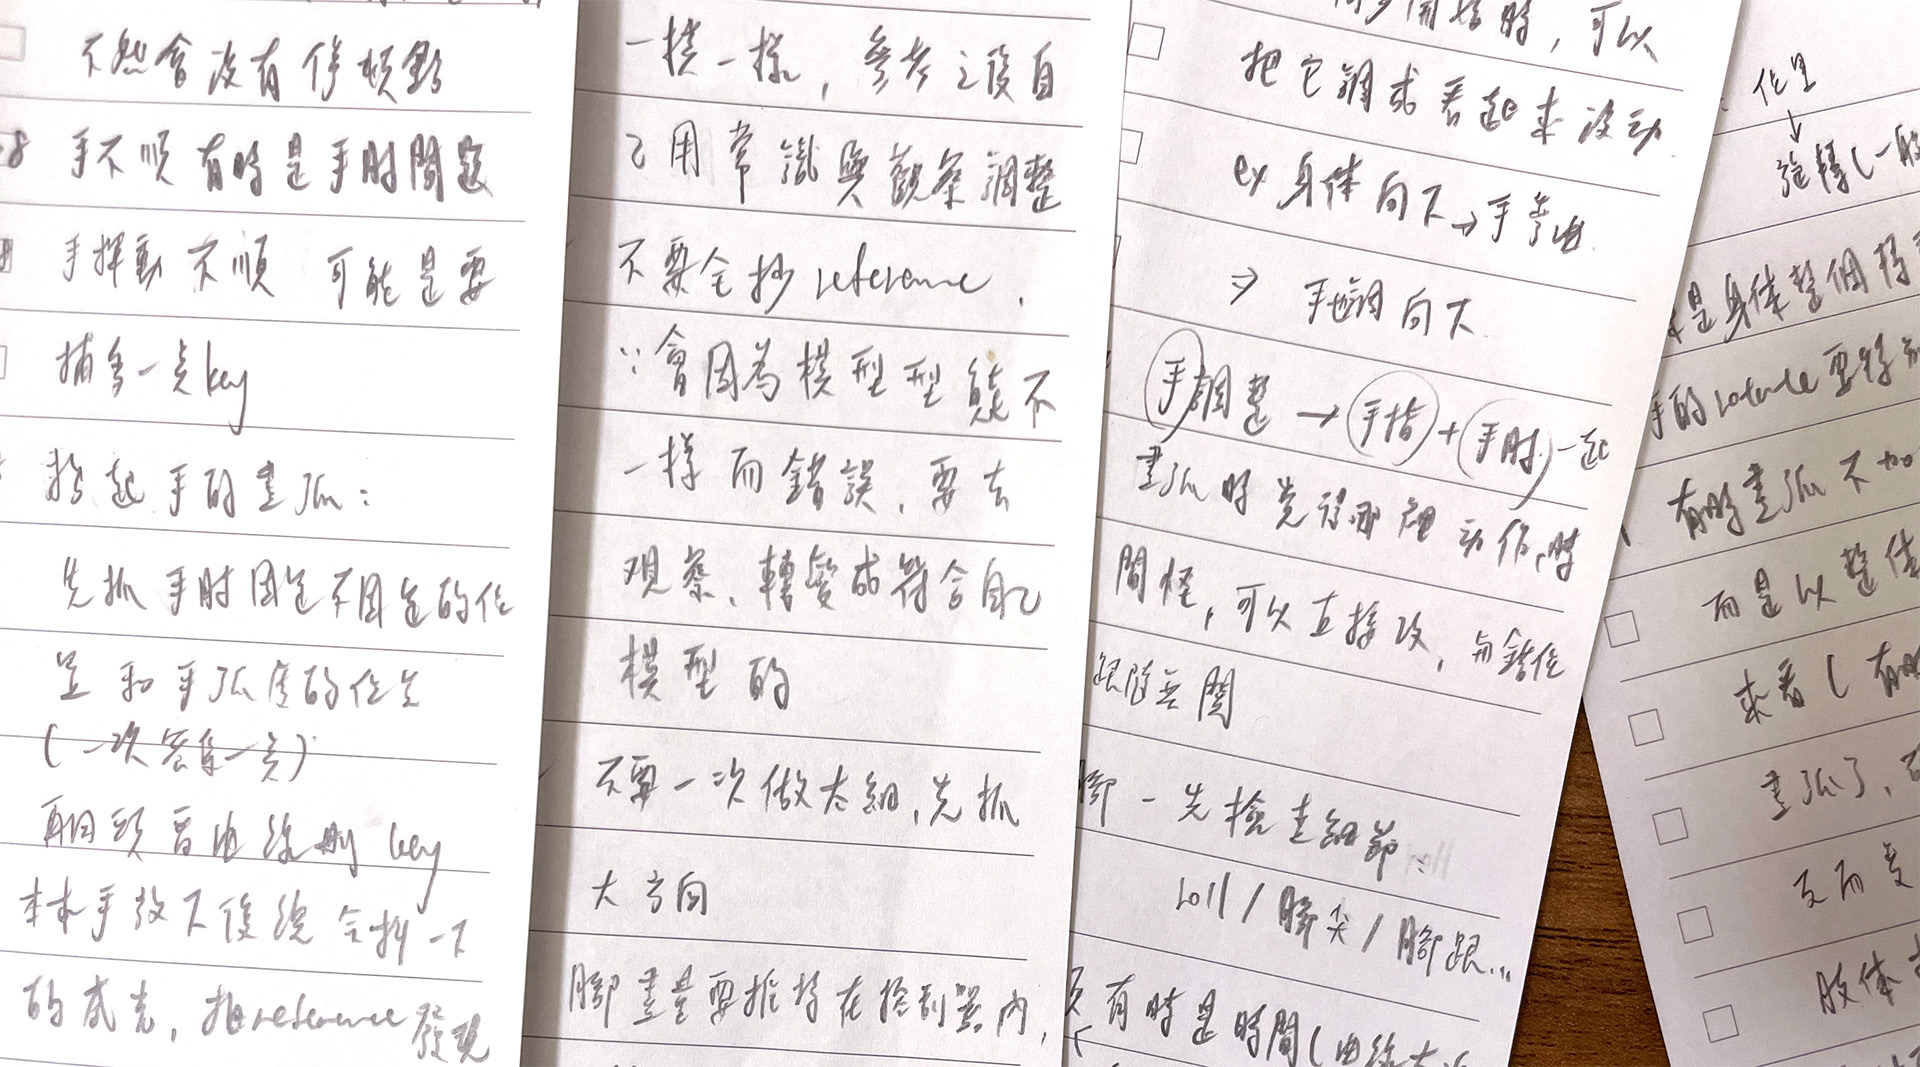 不然會沒有停頓點
手不順有時是手肘問題
手揮動不順 可能是要
補多一点key
抬起手的畫弧：
先抓手肘固定不固定的位
置和手弧度的位置
(一次密集一点)
再回頭看曲線刪key
本來手放下後總會抖一下
的感覺，抓reference發現
一模一樣，參考之後自
己用常識與觀察調整
不要全抄reference.
∵會因為模型型態不
一樣而錯誤，要去
觀察、轉變成符合自己
模型的
不要一次做太細，先抓
大方向
腳盡量要維持在控制器內，
開始時，可以
把它調成看起來沒动
ex 身体向下→手弯曲
⇒ 手也調向下
手調整 → 手指 + 手肘 一起
畫弧時先設哪裡动作，時
間怪，可以直接改，与錯位
跟隨無關
腳 一 先檢查細節：
roll / 腳尖 / 腳跟...
有時是時間(曲線
位置
↓
旋轉(一般
是身体整個移
手的rotate要特別
有時畫弧不
而是以整体
來看(有時
畫弧了，
反而
肢体